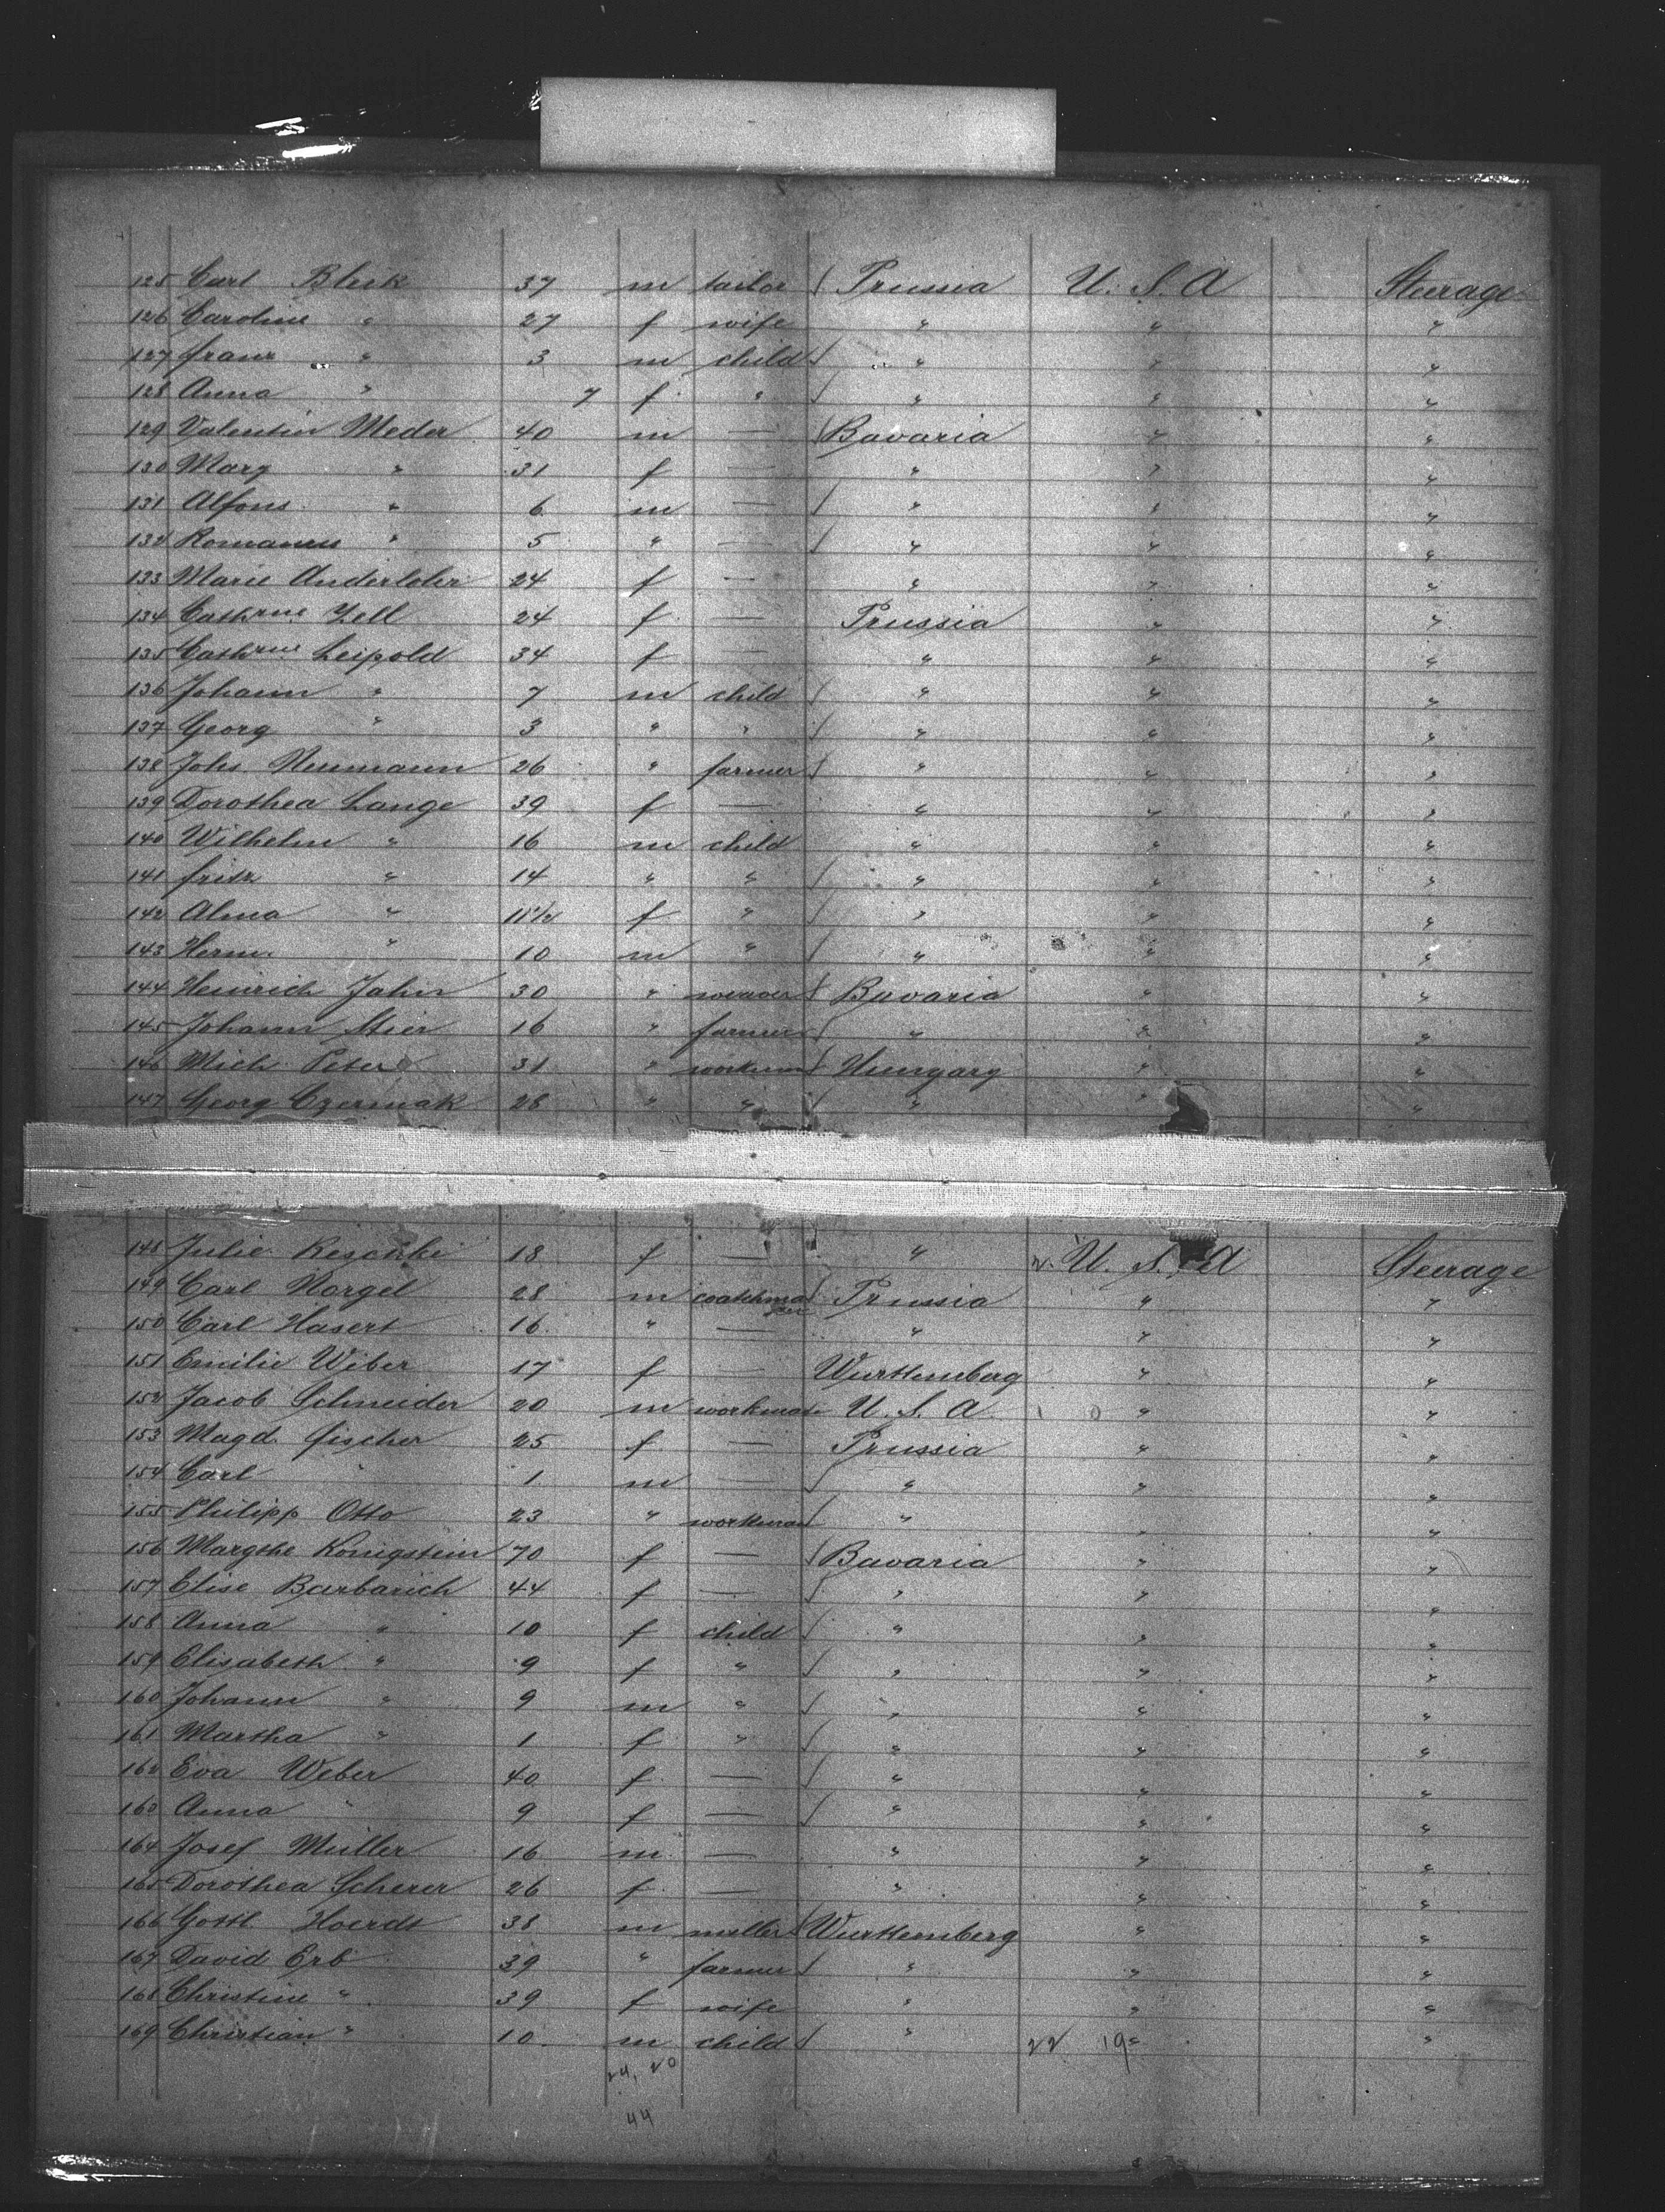 125 Carl Bleik 37 m tailor Prussia U. S. A Steerage
126 Caroline " 27 f wife " " "
127 franz " 3 m child " " "
128 Anna " 7 f " " " "
129 Valentin Meder 40 m — Bavaria " "
130 Mary " 31 f — " " "
131 Alfons " 6 m — " " "
132 Romanus " 5 " — " " "
133 Marie 24 f — " " "
134 Cathrne Zell 24 f — Prussia " "
135 Cathrne Leipold 34 f — " " "
136 Johann " 7 m child " " "
137 Georg " 3 " " " " "
138 Johs Neumann 26 " farmer " " "
139 Dorothea Lange 39 f — " " "
140 Wilhelm " 16 m child " " "
141 fritz " 14 " " " " "
142 Alma " 11 1/2 f " " " "
143 Herm. " 10 m " " " "
144 Heinrich Jahn 30 " weaver Bavaria " "
145 Johann Stier 16 " farmer " " "
146 Mich Peter 31 " workman Hungary " "
147 Georg Czermak 28 " " " " "
148 Julie Reschke 18 f — " U. S. A Steerage
149 Carl Norgel 28 m coachman Prussia " "
150 Carl Hasert 16 " — " " "
151 Emilie Weber 17 f — Wurttemberg " "
152 Jacob Schneider 20 m workman U. S. A. " "
153 Magd. fischer 25 f — Prussia " "
154 Carl " 1 m — " " "
155 Philipp Otto 23 " workman " " "
156 Margthe Konigstein 70 f — Bavaria " "
157 Elise Barbarich 44 f — " " "
158 Anna " 10 f child " " "
159 Elisabeth " 9 f " " " "
160 Johann " 9 m " " " "
161 Martha " 1 f " " " "
162 Eva Weber 40 f — " " "
163 Anna " 9 f — " " "
164 Josef Müller 16 m — " " "
165 Dorothea Scherer 26 f — " " "
166 Gottl. Hoerdt 38 m miller Wurttemberg " "
167 David Erb 39 " farmer " " "
168 Christine " 39 f wife " " "
169 Christian " 10 m child " 22 19 " "
24, 20
44